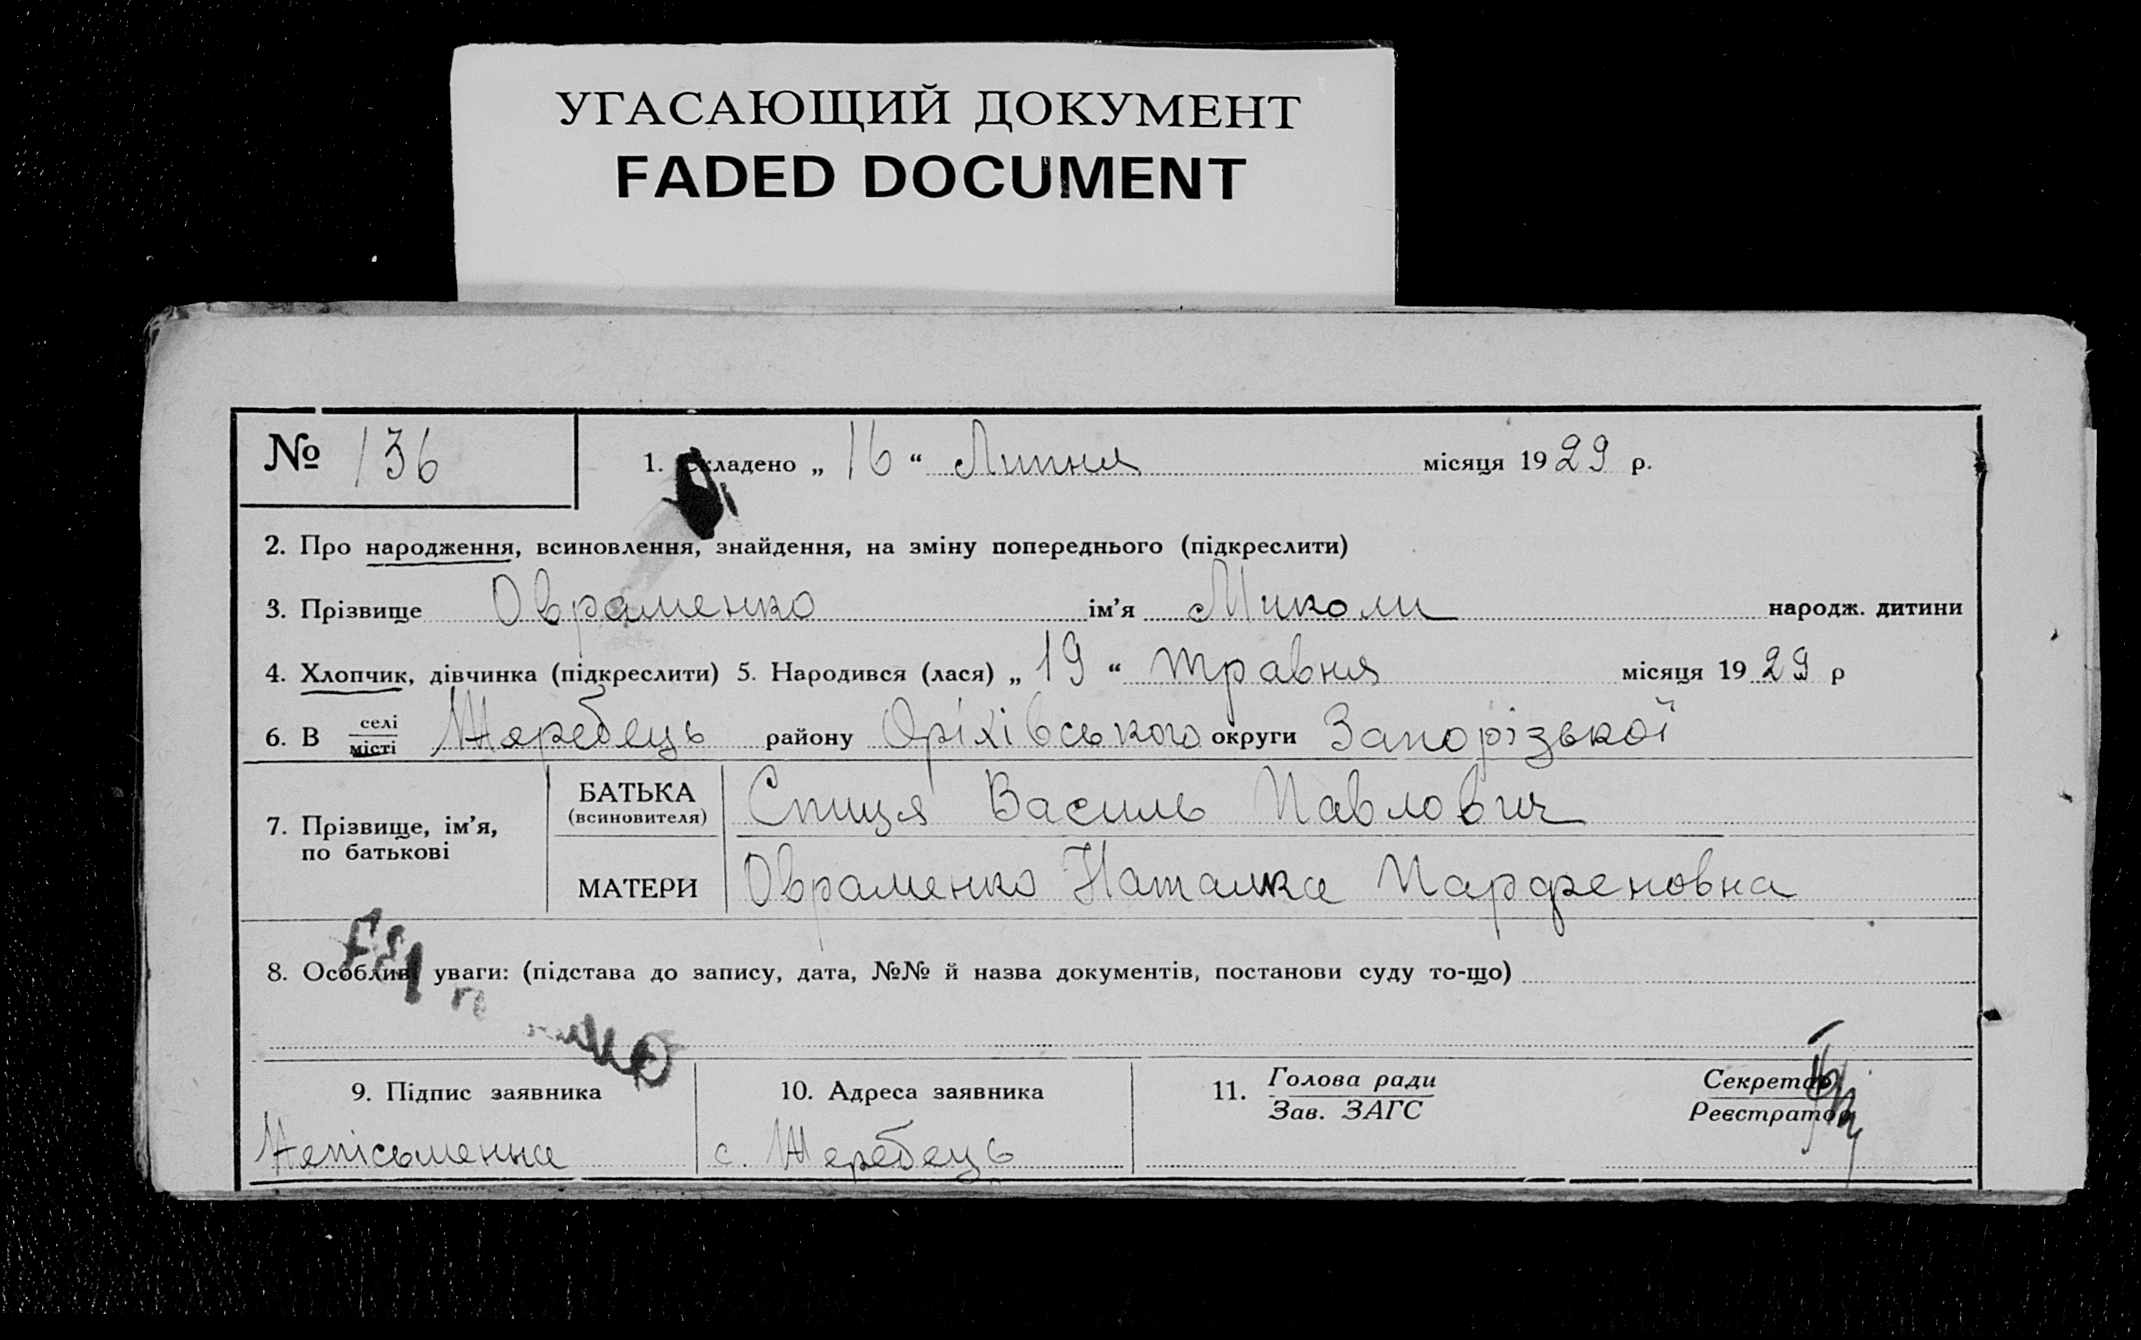 УГАСАЮЩИЙ ДОКУМЕНТ
FADED DOCUMENT
№ 136
1. Складено „ 16 “ Липня місяця 1929 р.
2. Про народження, всиновлення, знайдення, на зміну попереднього (підкреслити)
3. Прізвище Овраменко ім’я Миколи народж. дитини
4. Хлопчик, дівчинка (підкреслити) 5. Народився (лася) „ 19 “ травня місяця 1929 р
6. В селі місті Жеребець району Оріхівського округи Запорізької
7. Прізвище, ім’я, по батькові
БАТЬКА (всиновителя) Спиця Василь Павлович
МАТЕРИ Овраменко Наталка Парфеновна
8. Особливі уваги: (підстава до запису, дата, №№ й назва документів, постанови суду то-що)
9. Підпис заявника
Непісьменна
10. Адреса заявника
с. Жеребець
11. Голова ради
Зав. ЗАГС
Секретар
Реєстратор